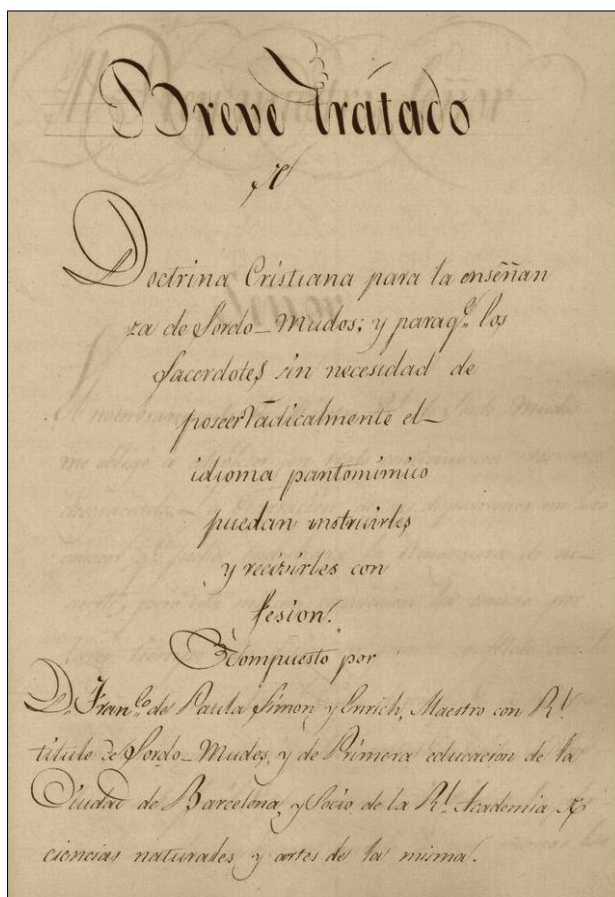 Breve tratado
de
Doctrina Cristiana para la enseñan
za de Sordo-Mudos; y paraqe. los
Sacerdotes sin necesidad de
poseer radicalmente el
idioma pantomimico
puedan instruirles,
y recibirles con
fesion.
Compuesto por
Dn. Franco. de Paula Simon y Enrich, Maestro con Rl.
titulo de Sordo-Mudos, y de Primera educacion de la
Ciudad de Barcelona, y Socio de la Rl. Academia de
ciencias naturales y artes de la misma.